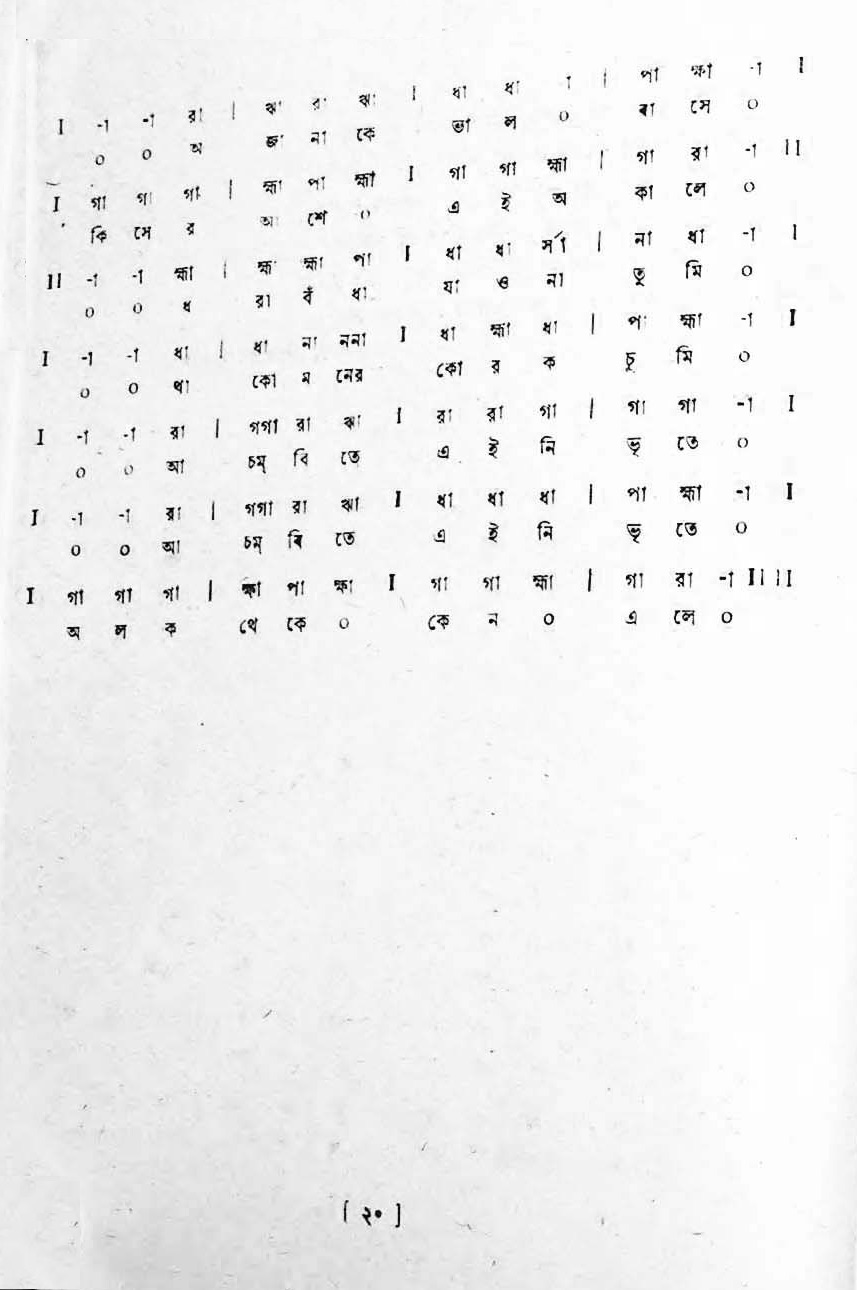 I -া -া রা | ঋা রা ঋা I ধা ধা -া | পা ক্ষা -া I
০ ০ অ জা না কে ভা ল ০ বা সে ০
I গা গা গা | হ্মা পা হ্মা I গা গা হ্মা | গা রা -া II
কি সে র আ শে ০ এ ই অ কা লে ০
II -া -া হ্মা | হ্মা হ্মা পা I ধা ধা র্সা | না ধা -া I
০ ০ ধ রা বঁ ধা যা ও না তু মি ০
I -া -া ধা | ধা না ননা I ধা হ্মা ধা | পা হ্মা -া I
০ ০ থা কো ম নের কো র ক চু মি ০
I -া -া রা | গগা রা ঋা I রা রা গা | গা গা -া I
০ ০ আ চম্ বি তে এ ই নি ভৃ তে ০
I -া -া রা | গগা রা ঋা I ধা ধা ধা | পা হ্মা -া I
০ ০ আ চম্ বি তে এ ই নি ভৃ তে ০
I গা গা গা | ক্ষা পা ক্ষা I গা গা হ্মা | গা রা -া II II
অ ল ক থে কে ০ কে ন ০ এ লে ০
[ ২০ ]